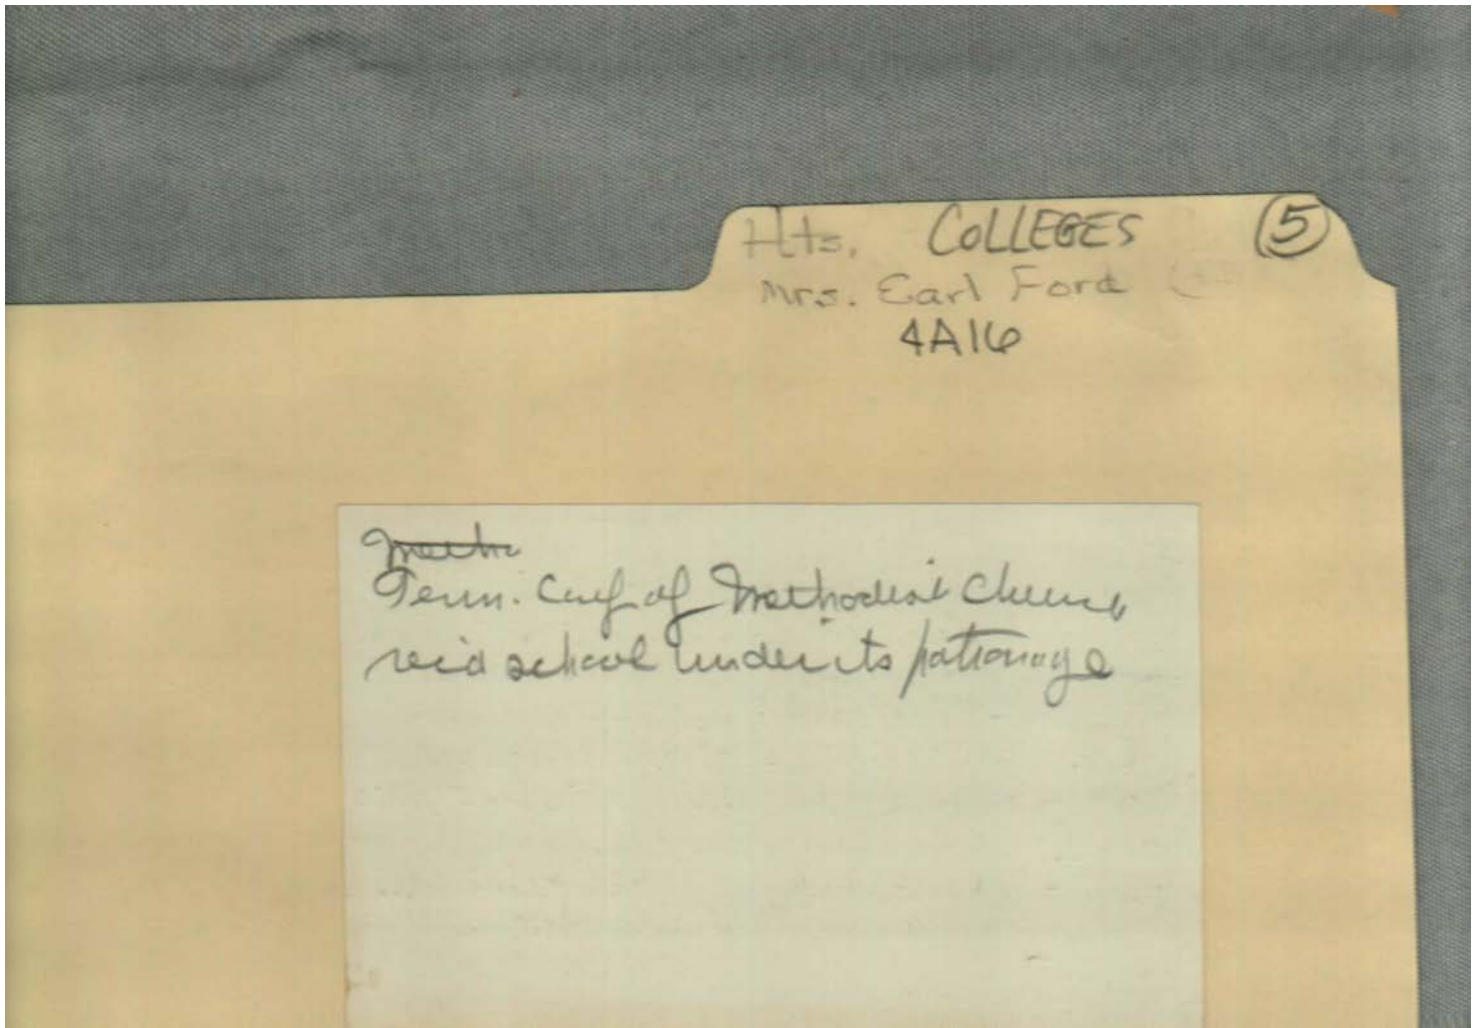 Hts. COLLEGES 5
Mrs. Earl Ford
4A16
Meth
Tenn. Conf of Methodist Church
school under its patronage